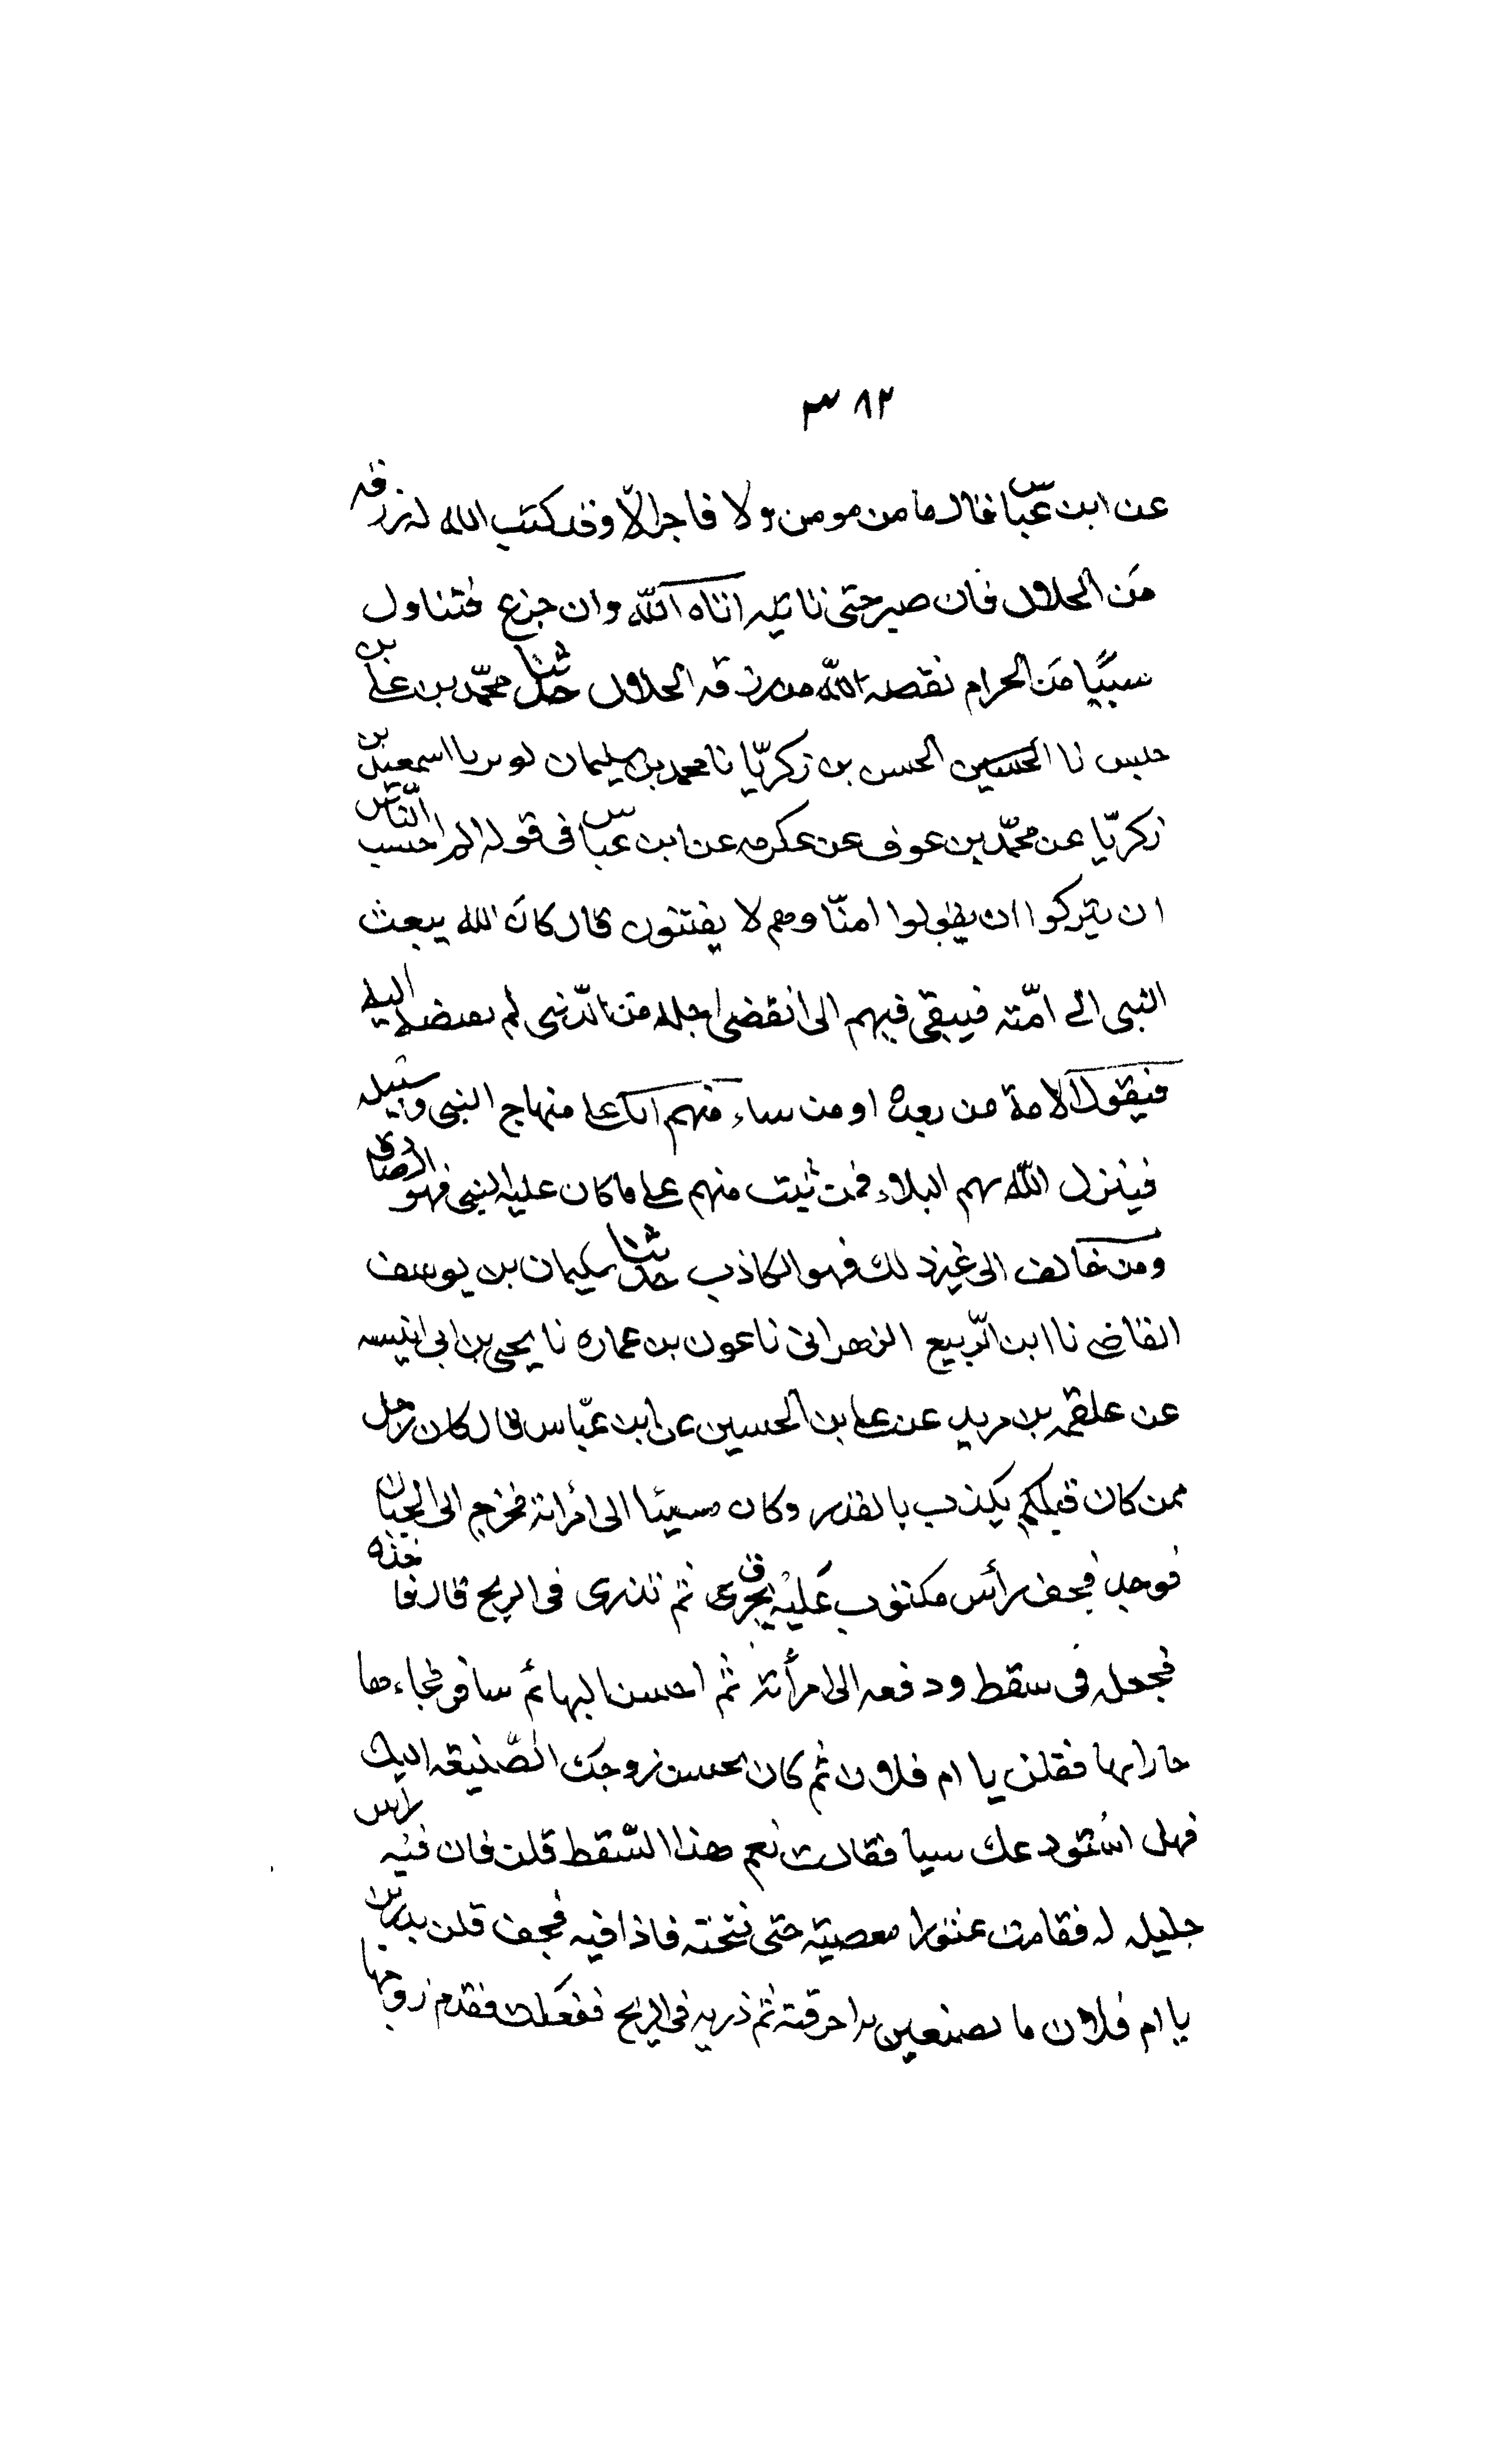 ٣٨٢
عن ابن عبّاس قال ما من مومن ولا فاجر الّا وقد كتب الله له رزقه
مَن الحلال فان صبر حتى تاتيه اتاه الله وان جزع فتناول
سيًيا مَن الحرام نقصه الله من رزقه الحلال حدثنا محمّد بن على بن
حبيس نا الحسين الحسن بن زكريّا نا محمد بن سليمان لوىں يا اسمعيل بن
زكريّا عن محمّد بن عوف عن عكرمه عن ابن عبّاس فى قوله الم احسب النّاس
ان يتركوا ان يقولوا امنّا وهم لا يفتنون قال كانَ الله يبعث
النبى الى امّته فيبقى فيهم الى انقضى اجله من الدّنيى ثم ىقبضه اليه
فيقول الامة من بعده او من ساء منهم انا على منهاج النبى وسبيله
فينزل الله بهم البلاء فمن ثبت منهم على ما كان عليه النبى فهو الصادق
ومن خالف الى غير ذلك فهو الكاذب حدثنا سليمان بن يوسف
القاضى نا ابن الرّبيع الزهرانى نا عون بن عماره نا يحيى بن ابى انيسه
عن علقمه بن مريد عن على بن الحسين عن ابن عبّاس قال كان رجل
ممن كان قبلكم يكذب بالقدر وكان مسيئا الى امراته فخرج الى الجبان
فوجد قحف رأس مكتوب عَليْه يحرق ثم تذرى فى الريح قال فاخذه
فجعله فى سقط ودفعه الى امرأته ثم احسن اليها ثم سافر فجاءها
جاراتها فقلن يا ام فلان ثم كان يحسن زوجك الصّنيعه اليك
فهل استودعك سيا فقالت نعم هذا السّقط قلن فان فيه راس
خليله له فقامت معصيته حتى فتحته فاذا فيه قحف قلن تدرين
يا ام فلان ما تصنعين ىه احرقته ثم ذريه فى الريح ففعَلت فقدم زوجها